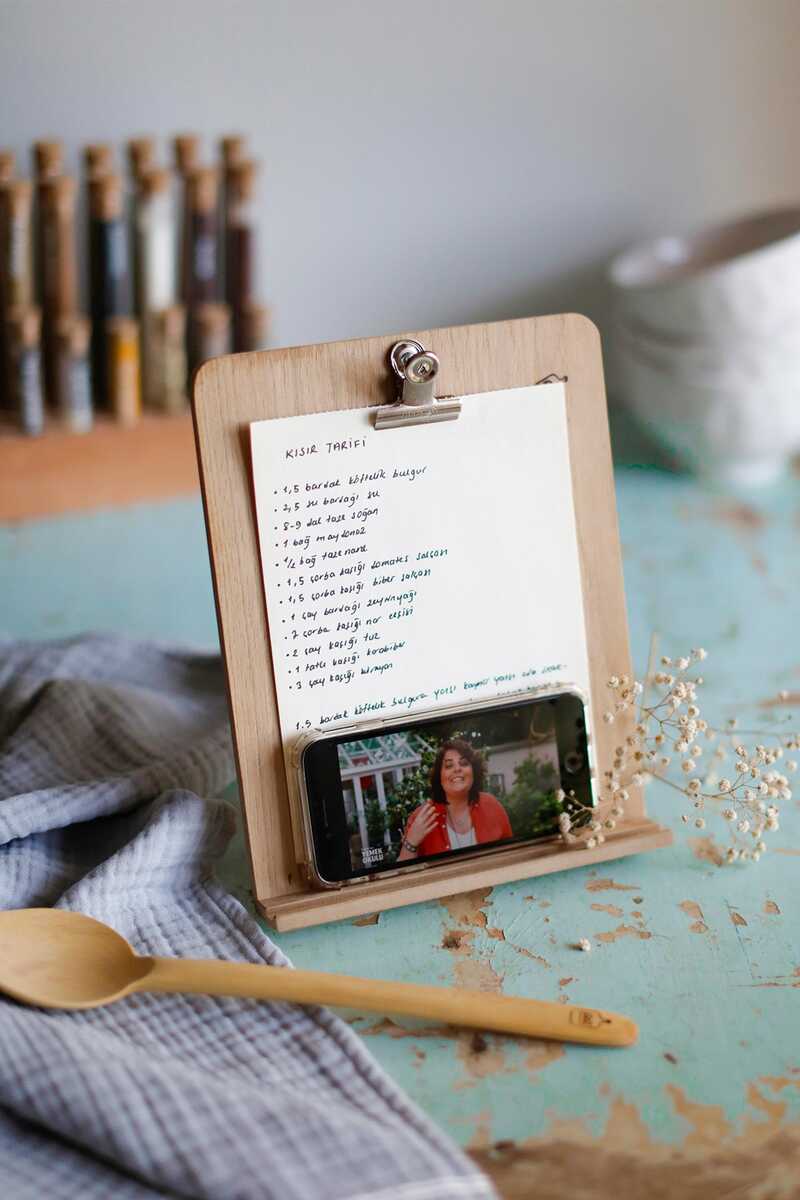 KISIR TARİFİ
• 1,5 bardak köftelik bulgur
• 2,5 su bardağı su
• 8-9 dal taze soğan
• 1 bağ maydonoz
• 1/2 bağ taze nane
• 1,5 çorba kaşığı domates salçası
• 1,5 çorba kaşığı biber salçası
• 1 çay bardağı zeytinyağı
• 2 çorba kaşığı nar ekşisi
• 2 çay kaşığı tuz
• 1 tatlı kaşığı karabiber
• 3 çay kaşığı kimyon
1.5 bardak köftelik bulgura yarısı kaynar yarısı
YEMEK
OKULU